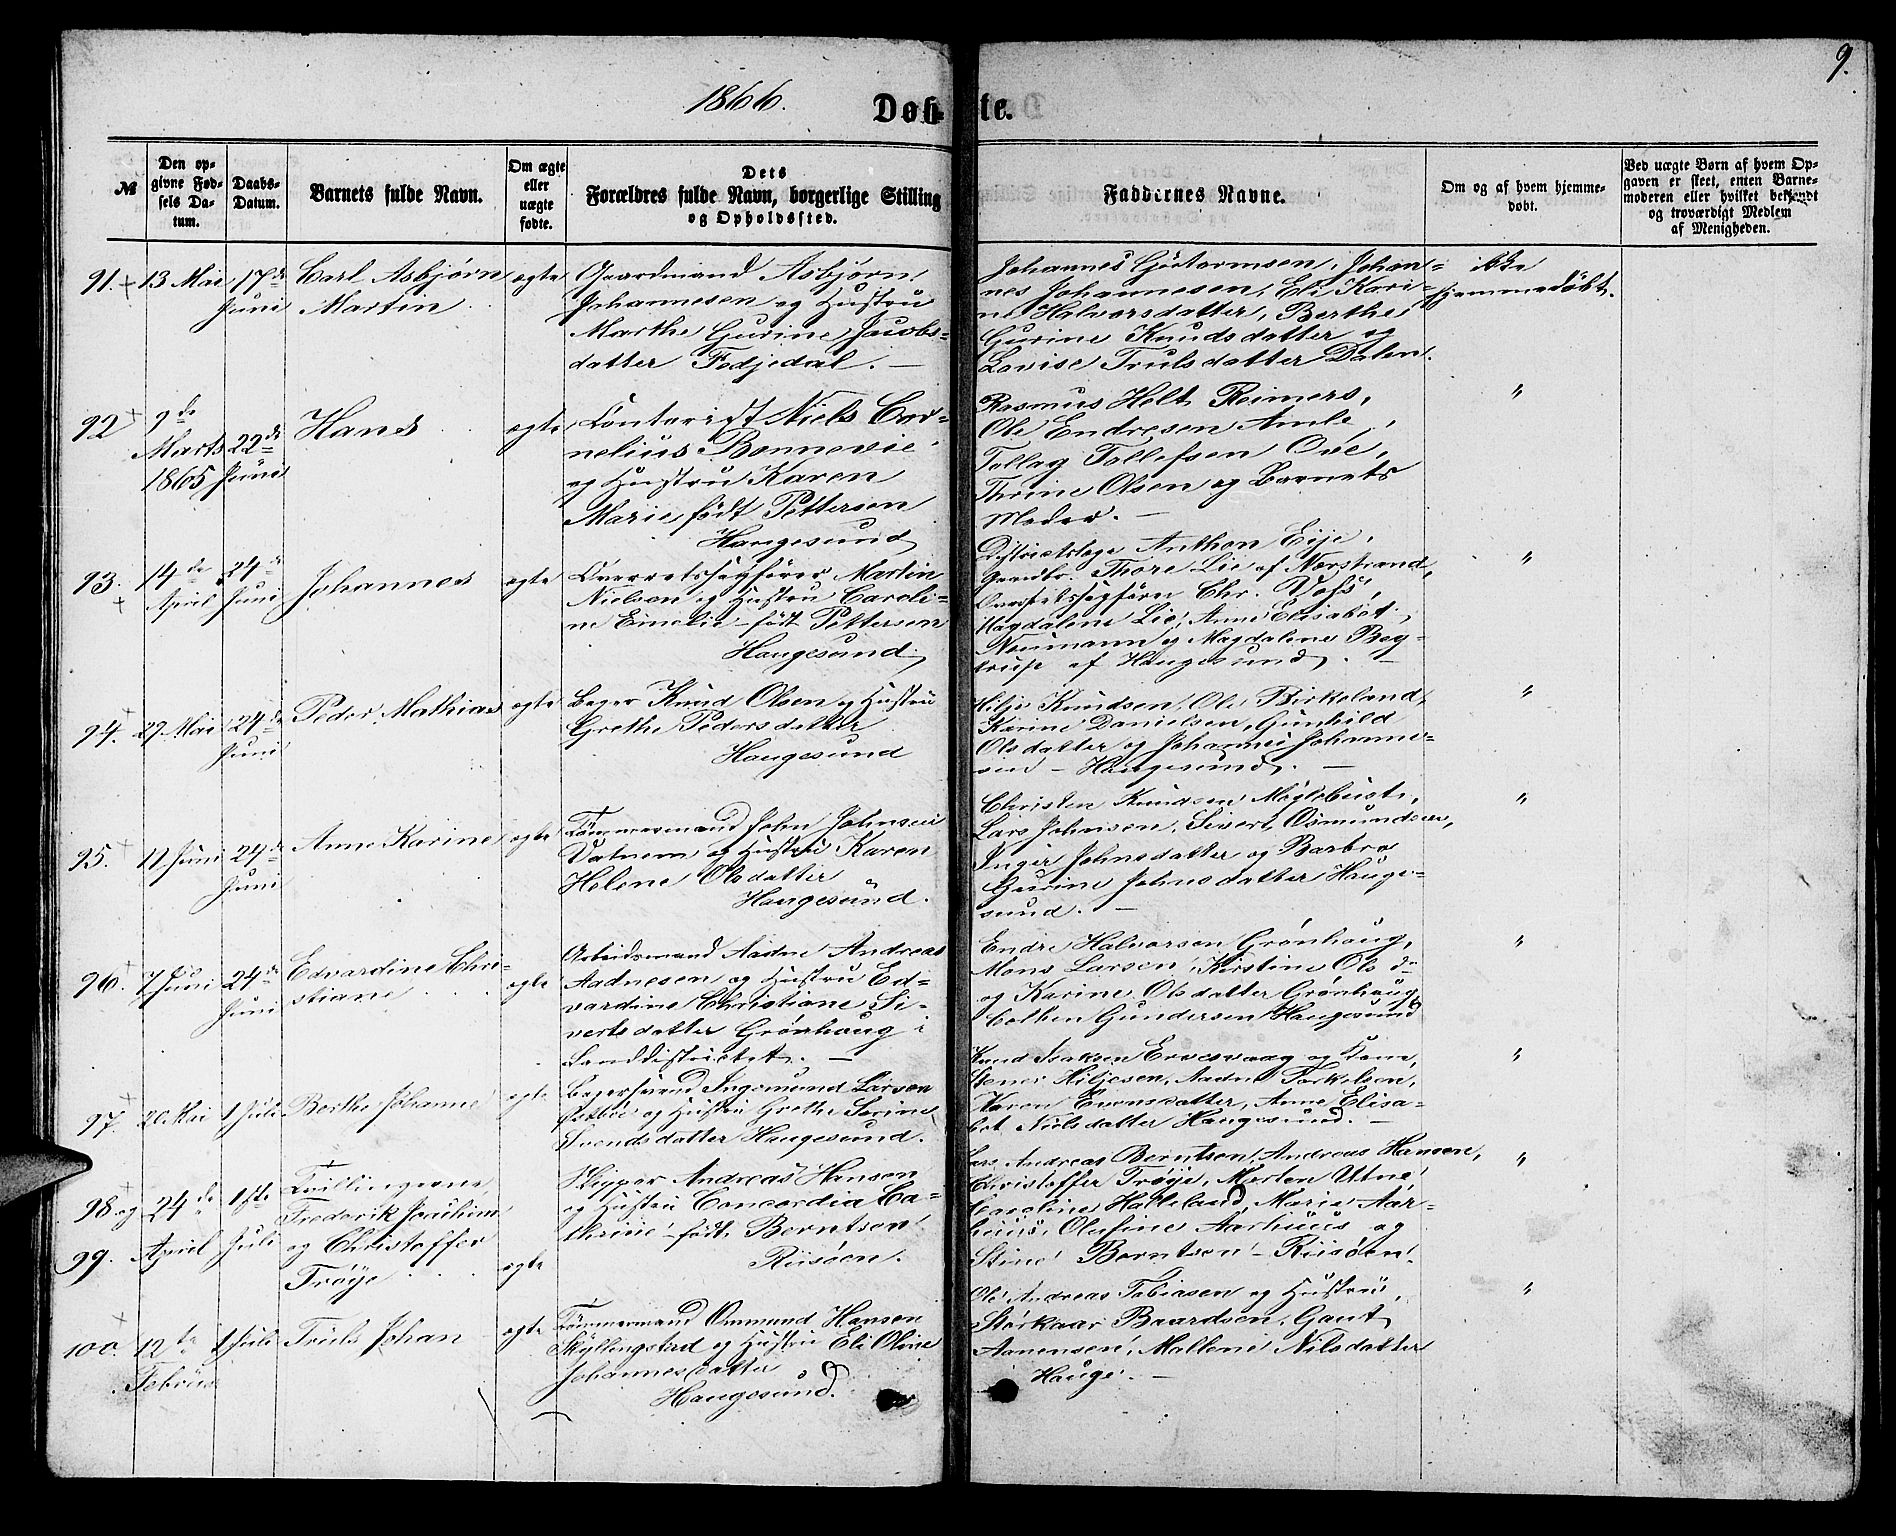 1866.
9.
Døbte.
№
Den op-
givne Fød-
sels Da-
tum.
Daabs-
Datum.
Barnets fulde Navn.
Om ægte
eller
uægte
fødte.
Dets
Forældres fulde Navn, borgerlige Stilling
og Opholdssted.
Faddernes Navne.
Om og af hvem hjemme-
døbt.
Ved uægte Børn af hvem Op-
gaven er skeet, enten Barne-
moderen eller hvilket bekjendt
og troværdigt Medlem
af Menigheden.
91.
13 Mai
17de
Juni
Carl Asbjørn
Martin
ægte
Gaardmand Asbjørn
Johannesen og Hustru
Marthe Gurine Jacobs-
datter Fedjedal.
Johannes Gutormsen, Johan-
nes Johannesen, Eli Kari-
ne Halvorsdatter, Berthe
Gurine Knudsdatter og
Lovise Trulsdatter Dalen.
ikke
hjemmedøbt.
92
9de
Marts
1865
22de
Juni
Hans
ægte
Contorist Niels Cor-
nelius Bonnevie
og Hustru Karen
Marie født Pettersen
Haugesund
Rasmus Holt Reimers,
Ole Endresen Amle,
Tollag Tollefsen Ove,
Thrine Olsen og Barnets
Moder.
"
93.
14de
April
24de
Juni
Johannes
ægte
Overretssagfører Martin
Nielsen og Hustru Caroli-
ne Emelie født Pettersen
Haugesund
Distriktslæge Anthon Eije,
Gaardbr. Thore Lie af Nerstrand,
Overretssagfører Chr. Voss,
Magdalene Lie, Anne Elisabet
Neumann og Magdalene Beg-
trup af Haugesund.
"
94.
29 Mai
24de
Juni
Peder Mathias
ægte
Bager Knud Olsen og Hustru
Grethe Pedersdatter
Haugesund
Hilje Knudsen, Ole Birkeland,
Karine Danielsen, Gunhild
Olsdatter og Johannes Johanne-
sen - Haugesund.
"
95.
11 Juni
24de
Juni
Anne Karine
ægte
Tømmermand John Johnsen
Vatnem og Hustru Karen
Helene Olsdatter
Haugesund.
Christen Knudsen
Lars Johnsen, Sivert Osmundsen,
Inger Johnsdatter og Barbro
Gurine Johnsdatter Hauge-
sund.
"
96.
7 Juni
24de
Juni
Edvardine Chri-
stiane
ægte
Arbeidsmand Aadne Andreas
Aadnesen og Hustru Ed-
vardine Christiane Si-
vertsdatter Grønhaug i
Landdistrictet.
Endre Halvorsen Grønhaug,
Mons Larsen, Kirstine Olsd.
og Karine Olsdatter Grønhaug,
Gundersen Haugesund
"
97.
20 Mai
1 Juli
Berthe Johanne
ægte
Bagersvend Ingemund Larsen
og Hustru Grethe Serine
Svendsdatter Haugesund.
Knud Isaksen Ervesvaag og Kone,
Stener Hiljesen, Aadne Torkelsen,
Karen Evensdatter, Anne Elisa-
bet Nilsdatter Haugesund.
"
98 og
99.
24de
April
1ste
Juli
Tvillingerne
Frederik Joachim
og Christoffer
Trøye
ægte
Skipper Andreas Hansen
og Hustru Concordia Ca-
thrine født Berntsen
Risøen.
Lars Andreas Berntsen, Andreas Hansen,
Christoffer Trøye, Morten Utne,
Caroline Halleland, Marie Aar-
huus, Olufine Aarhuus og
Stine Berntsen - Risøen.
"
100.
12te
Februar
1 Juli
Truls Johan
ægte
Tømmermand Ommund Hansen
Skyllingstad og Hustru Eli Oline
Johannesdatter
Haugesund.
Ole Andreas Tobiasen og Hustru,
Størkaar Baardsen, Gaut
Aanensen, Mallene Nilsdatter
Hauge.
"